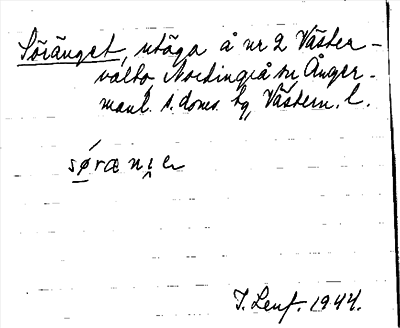 Söränget, utäga å nr 2 Väster-
valto, Nordingrå sn, Ånger-
manl. s. doms. tg, Västern. l.
sørænɩe
J. Lenf. 1944.